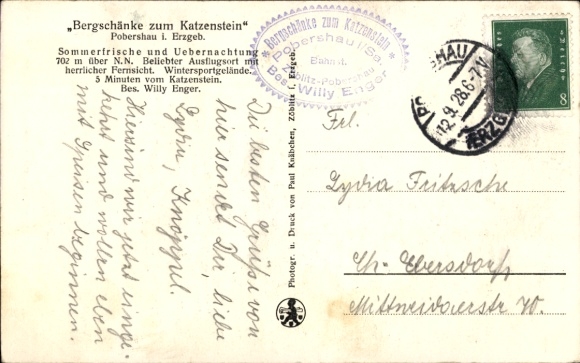 „Bergschänke zum Katzenstein"
Pobershau i. Erzgeb.
Sommerfrische und Uebernachtung
702 m über N.N. Beliebter Ausflugsort mit
herrlicher Fernsicht. Wintersportgelände.
5 Minuten vom Katzenstein.
Bes. Willy Enger.
Die besten Grüße von
hier sendet Dir, liebe
Lydia, Knöppl.
Hier sind wir jetzt einge-
kehrt und wollen eben
mit Speisen beginnen.
Photogr. u. Druck von Paul Knäbchen, Zöblitz i. Erzgeb.
* Bergschänke zum Katzenstein *
Pobershau i/Sa.
Bahnst.
Zöblitz-Pobershau
Bes. Willy Enger
12.9.28.6-7 V
ERZG
8
Frl.
Lydia Fritzsche
Ch. Ebersdorf,
Mittweidaerstr. 70.